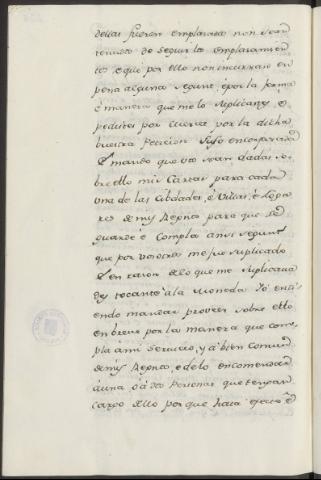 dellas fueren emplazados non sean
tenudos de seguir los emplazamien
tos, e que por ello non incurran en
pena alguna segunt, e por la forma
e manera que me lo suplicays, e
pedistes por cuerve por la dicha
buestra peticion suso encorporada
E mando que vos sean dadas so
bre ello mis Cartas para cada
una de las Cibdades, e Villas, e Loga
res de mis Regnos para que se
guarde e Cumpla ansi segunt
que por vosotros me fue suplicado
E en razon de lo que me suplicaua
des tocante à la Moneda Yo enti
endo mandar proveer sobre ello
en breve por la manera que com
pla à mi servicio, y à bien comun
de mis Regnos, e de lo encomendar
à una ò à dos Personas que tengan
cargo dello por que haia efecto è